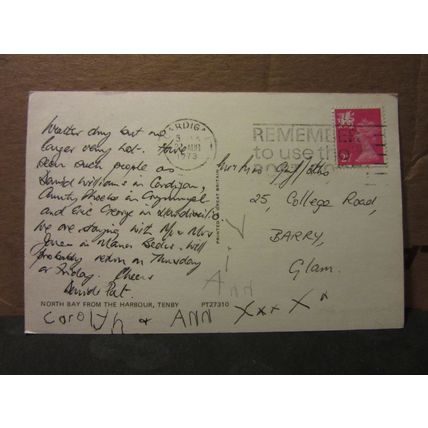 Weather dry but no
longer very hot. Have
seen such people as
David Williams in Cardigan,
Aunty Phoebe in
and Eric George in Llandissilio
We are staying with Mr & Mrs
Jones in Manor Bedw. Will
probably return on Thursday
or Friday. Cheers
David & Pat
NORTH BAY FROM THE HARBOUR, TENBY
PT27310
CAROLYN & ANN
PRINTED IN GREAT BRITAIN
Ann
CARDIGAN
AUG
1973
REMEMBER
to use the
Mr & Mrs
25, College Road,
BARRY,
Glam.
xxx x